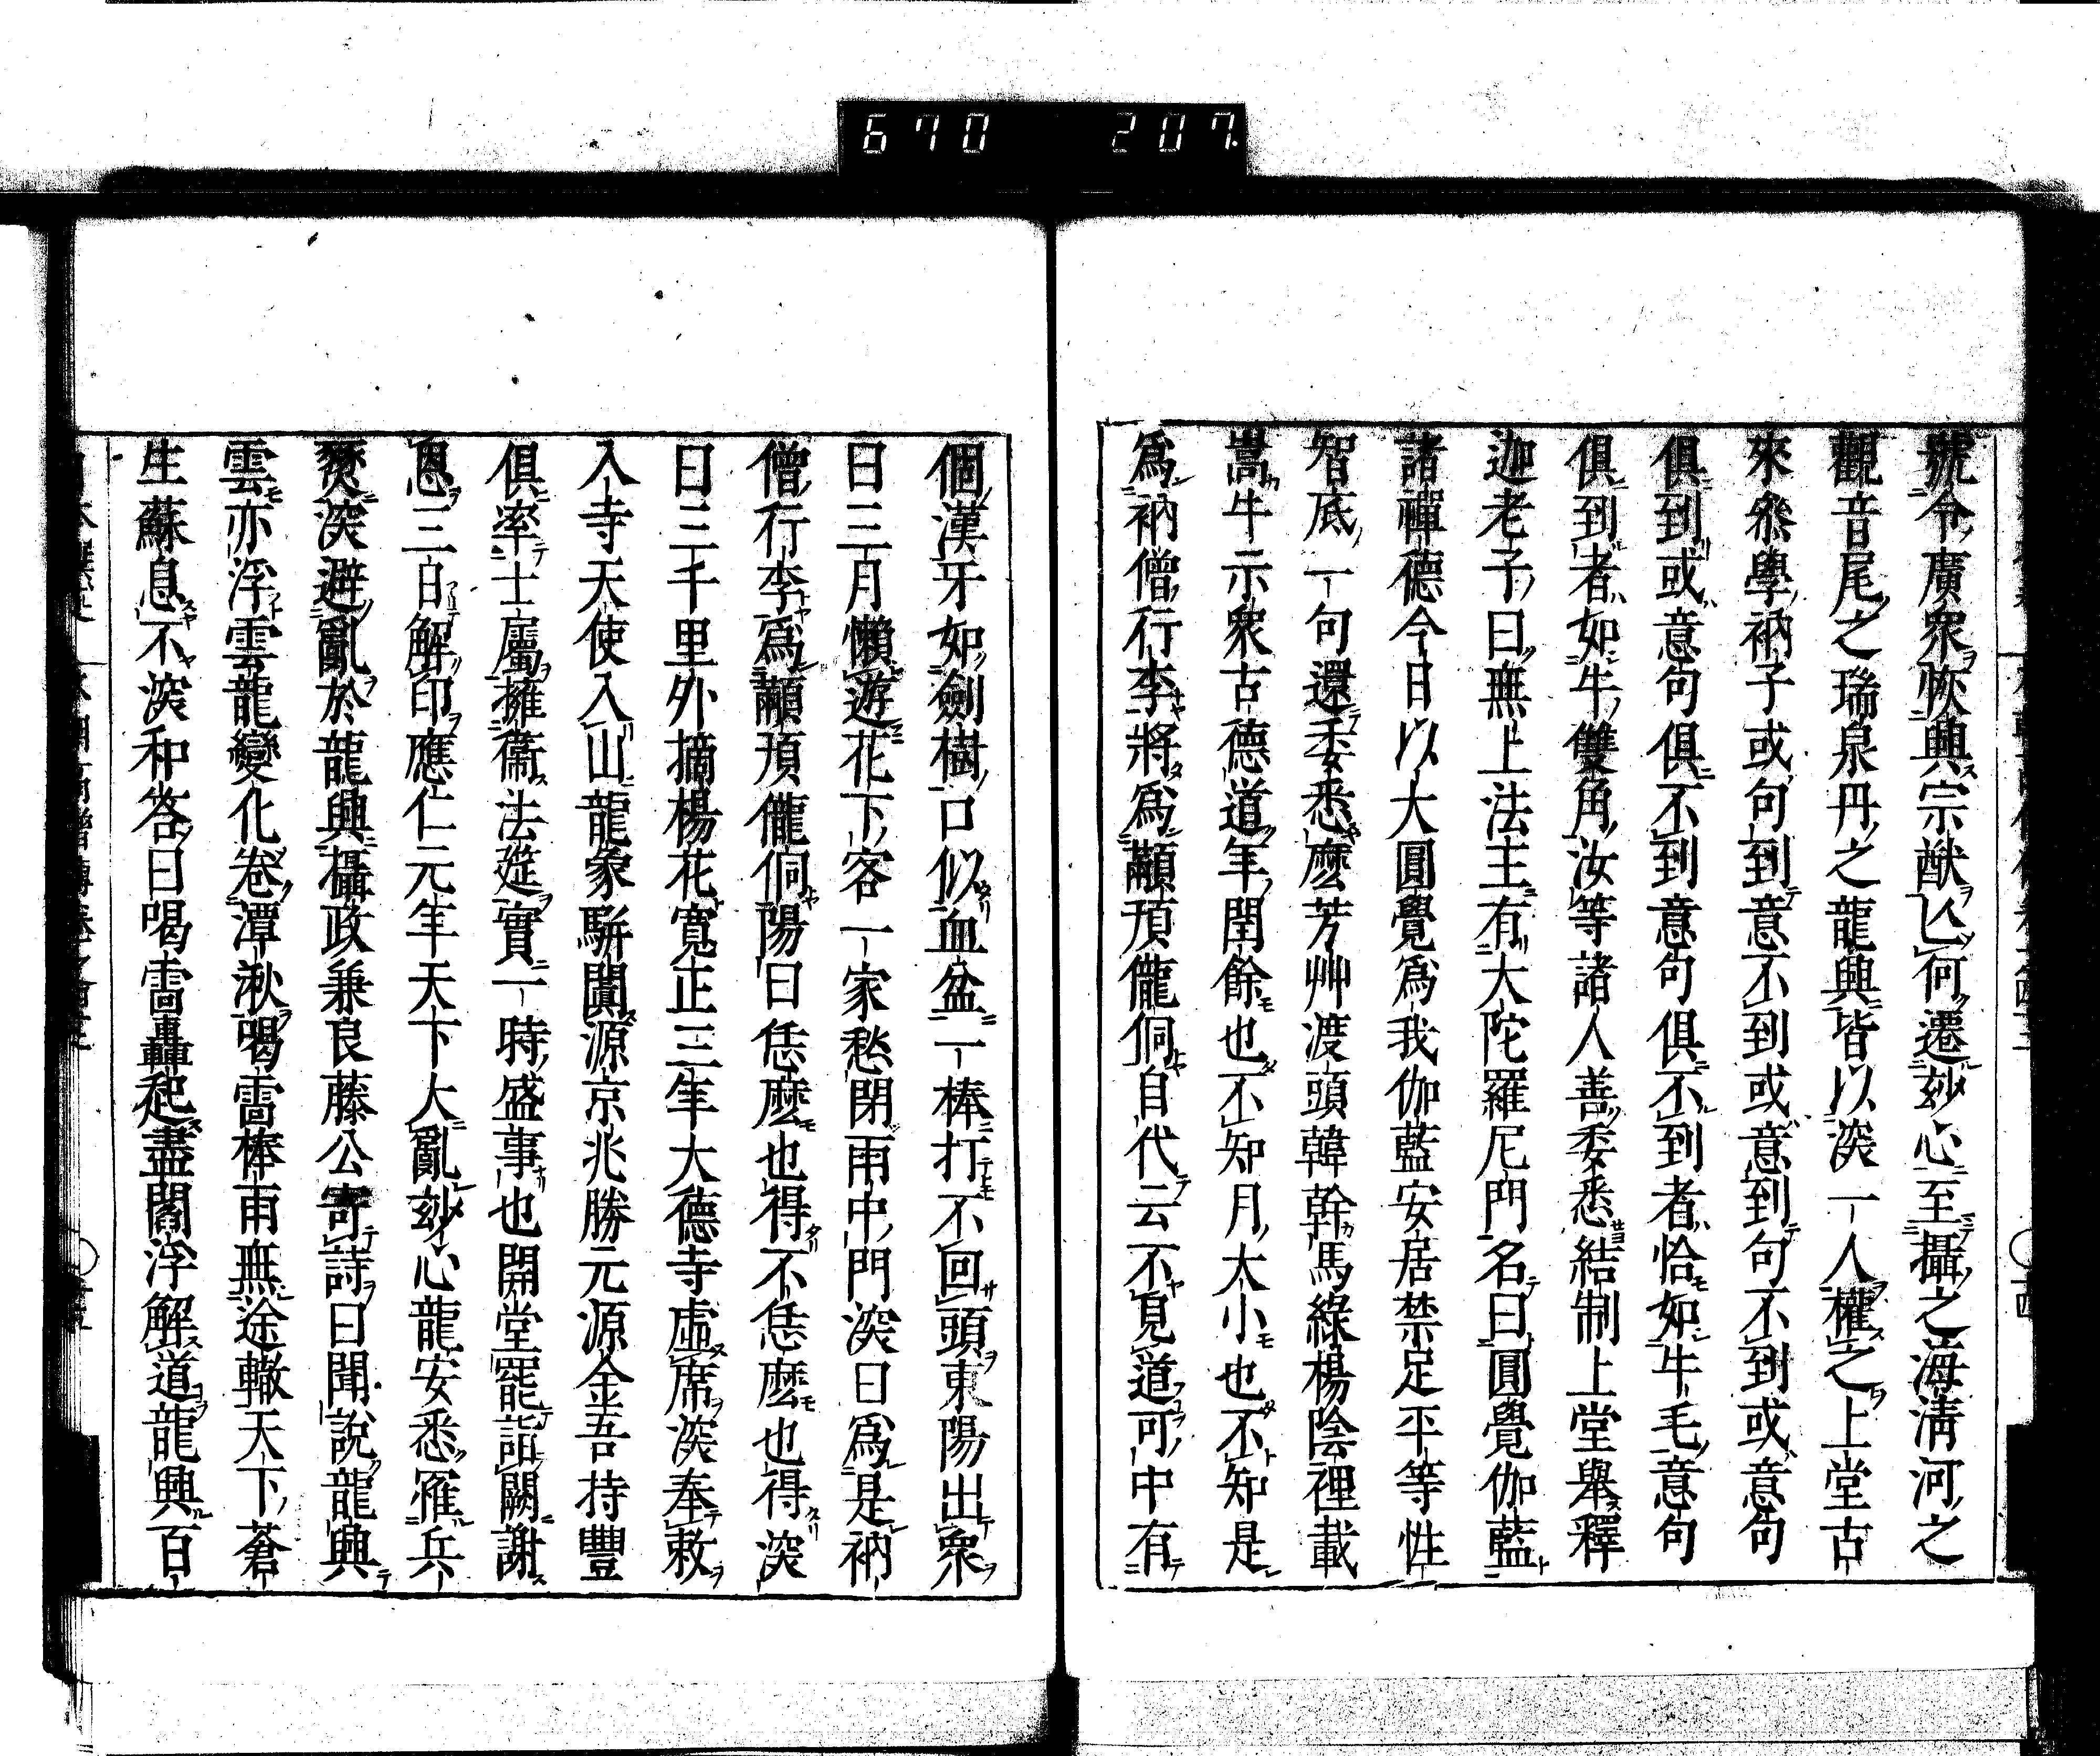 670 207
號令廣衆恢興宗猷亾何遷玅心至攝之海淸河之
觀音尾之瑞泉丹之龍興皆以深一人權之上堂古
來叅學衲子或句到意不到或意到句不到或意句
俱到或意句俱不到意句俱不到者恰如牛毛意句
俱到者如牛雙角汝等諸人善委悉結制上堂舉釋
迦老子曰無上法主有大陀羅尼門名曰圓覺伽藍
諸禪德今日以大圓覺爲我伽藍安居禁足平等性
智底一句還委悉麽芳艸渡頭韓幹馬綠楊陰裡載
嵩牛示衆古德道年閏餘也不知月大小也不知是
爲衲僧行李將爲顢頇儱侗自代云不見道可中有
個漢牙如劍樹口似血盆一棒打不回頭東陽出衆
曰三月懶遊花下客一家愁閉雨中門深曰爲是衲
僧行李爲顢頇儱侗陽曰恁麽也得不恁麽也得深
曰三千里外摘楊花寬正三年大德寺虛席深奉敕
入寺天使入山龍象駢闐源京兆勝元源金吾持豐
俱率士屬擁衞法筵實一時盛事也開堂罷詣闕謝
恩三日解印應仁元年天下大亂玅心龍安悉罹兵
燹深避亂於龍興攝政兼良藤公寄詩曰聞說龍興
雲亦浮雲龍變化卷潭湫喝雷棒雨無途轍天下蒼
生蘇息不深和答曰喝雷轟起盡閻浮解道龍興百